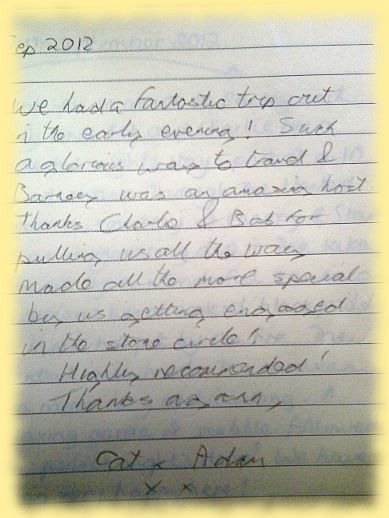 Sep 2012
We had a fantastic trip out
in the early evening! Such
a glorious way to travel &
Barney was an amazing host
Thanks Charlie & Bob for
pulling us all the way
made all the more special
by us getting engaged
in the stone circle!
Highly recommended!
Thanks again,
Cat & Adam
x x